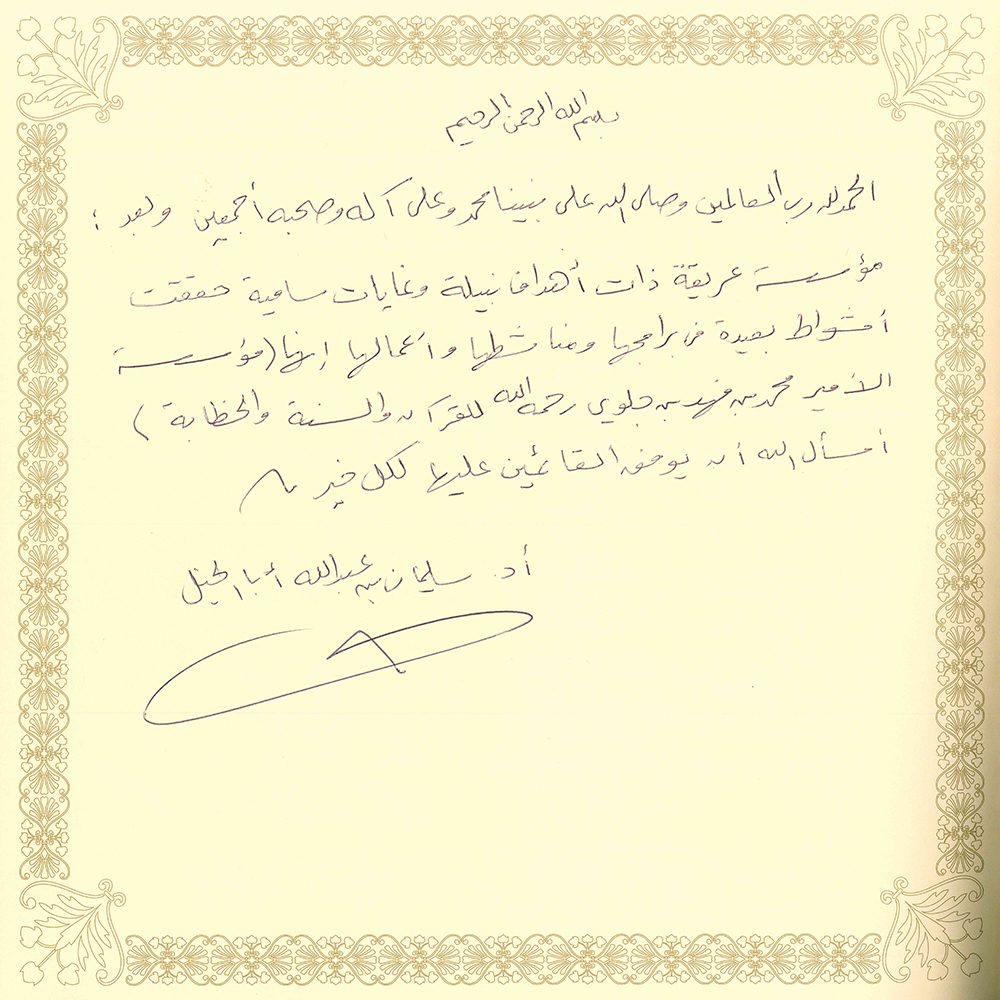 بسم الله الرحمن الرحيم
الحمد لله رب العالمين وصلى الله على نبينا محمد وعلى آله وصحبه أجمعين وبعد :
مؤسسة عريقة ذات أهداف نبيلة وغايات سامية حققت
أشواط بعيدة في برامجها ومناشطها وأعمالها إنها (مؤسسة
الأمير محمد بن فهد بن جلوي رحمه الله للقرآن والسنة والخطابة )
أسأل الله أن يوفق القائمين عليها لكل خير
أ.د. سليمان بن عبدالله أبا الخيل